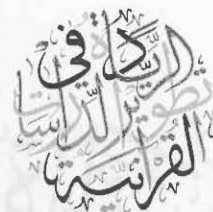 الريادة في
تطوير الدراسات
القرآنية